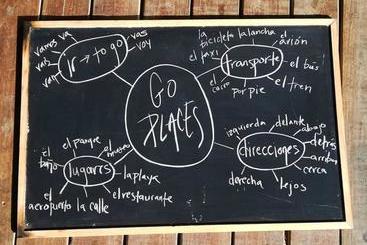 vamos
vais
van
vas
voy
ir → to go
la bicicleta
la lancha
el avión
el taxi
transporte
el bús
el carro
por pie
el tren
GO
PLACES
izquierda
delante
abajo
detrás
direcciones
arriba
cerca
derecha
lejos
el parque
el museo
el baño
lugares
la playa
el restaurante
el aeropuerto
la calle